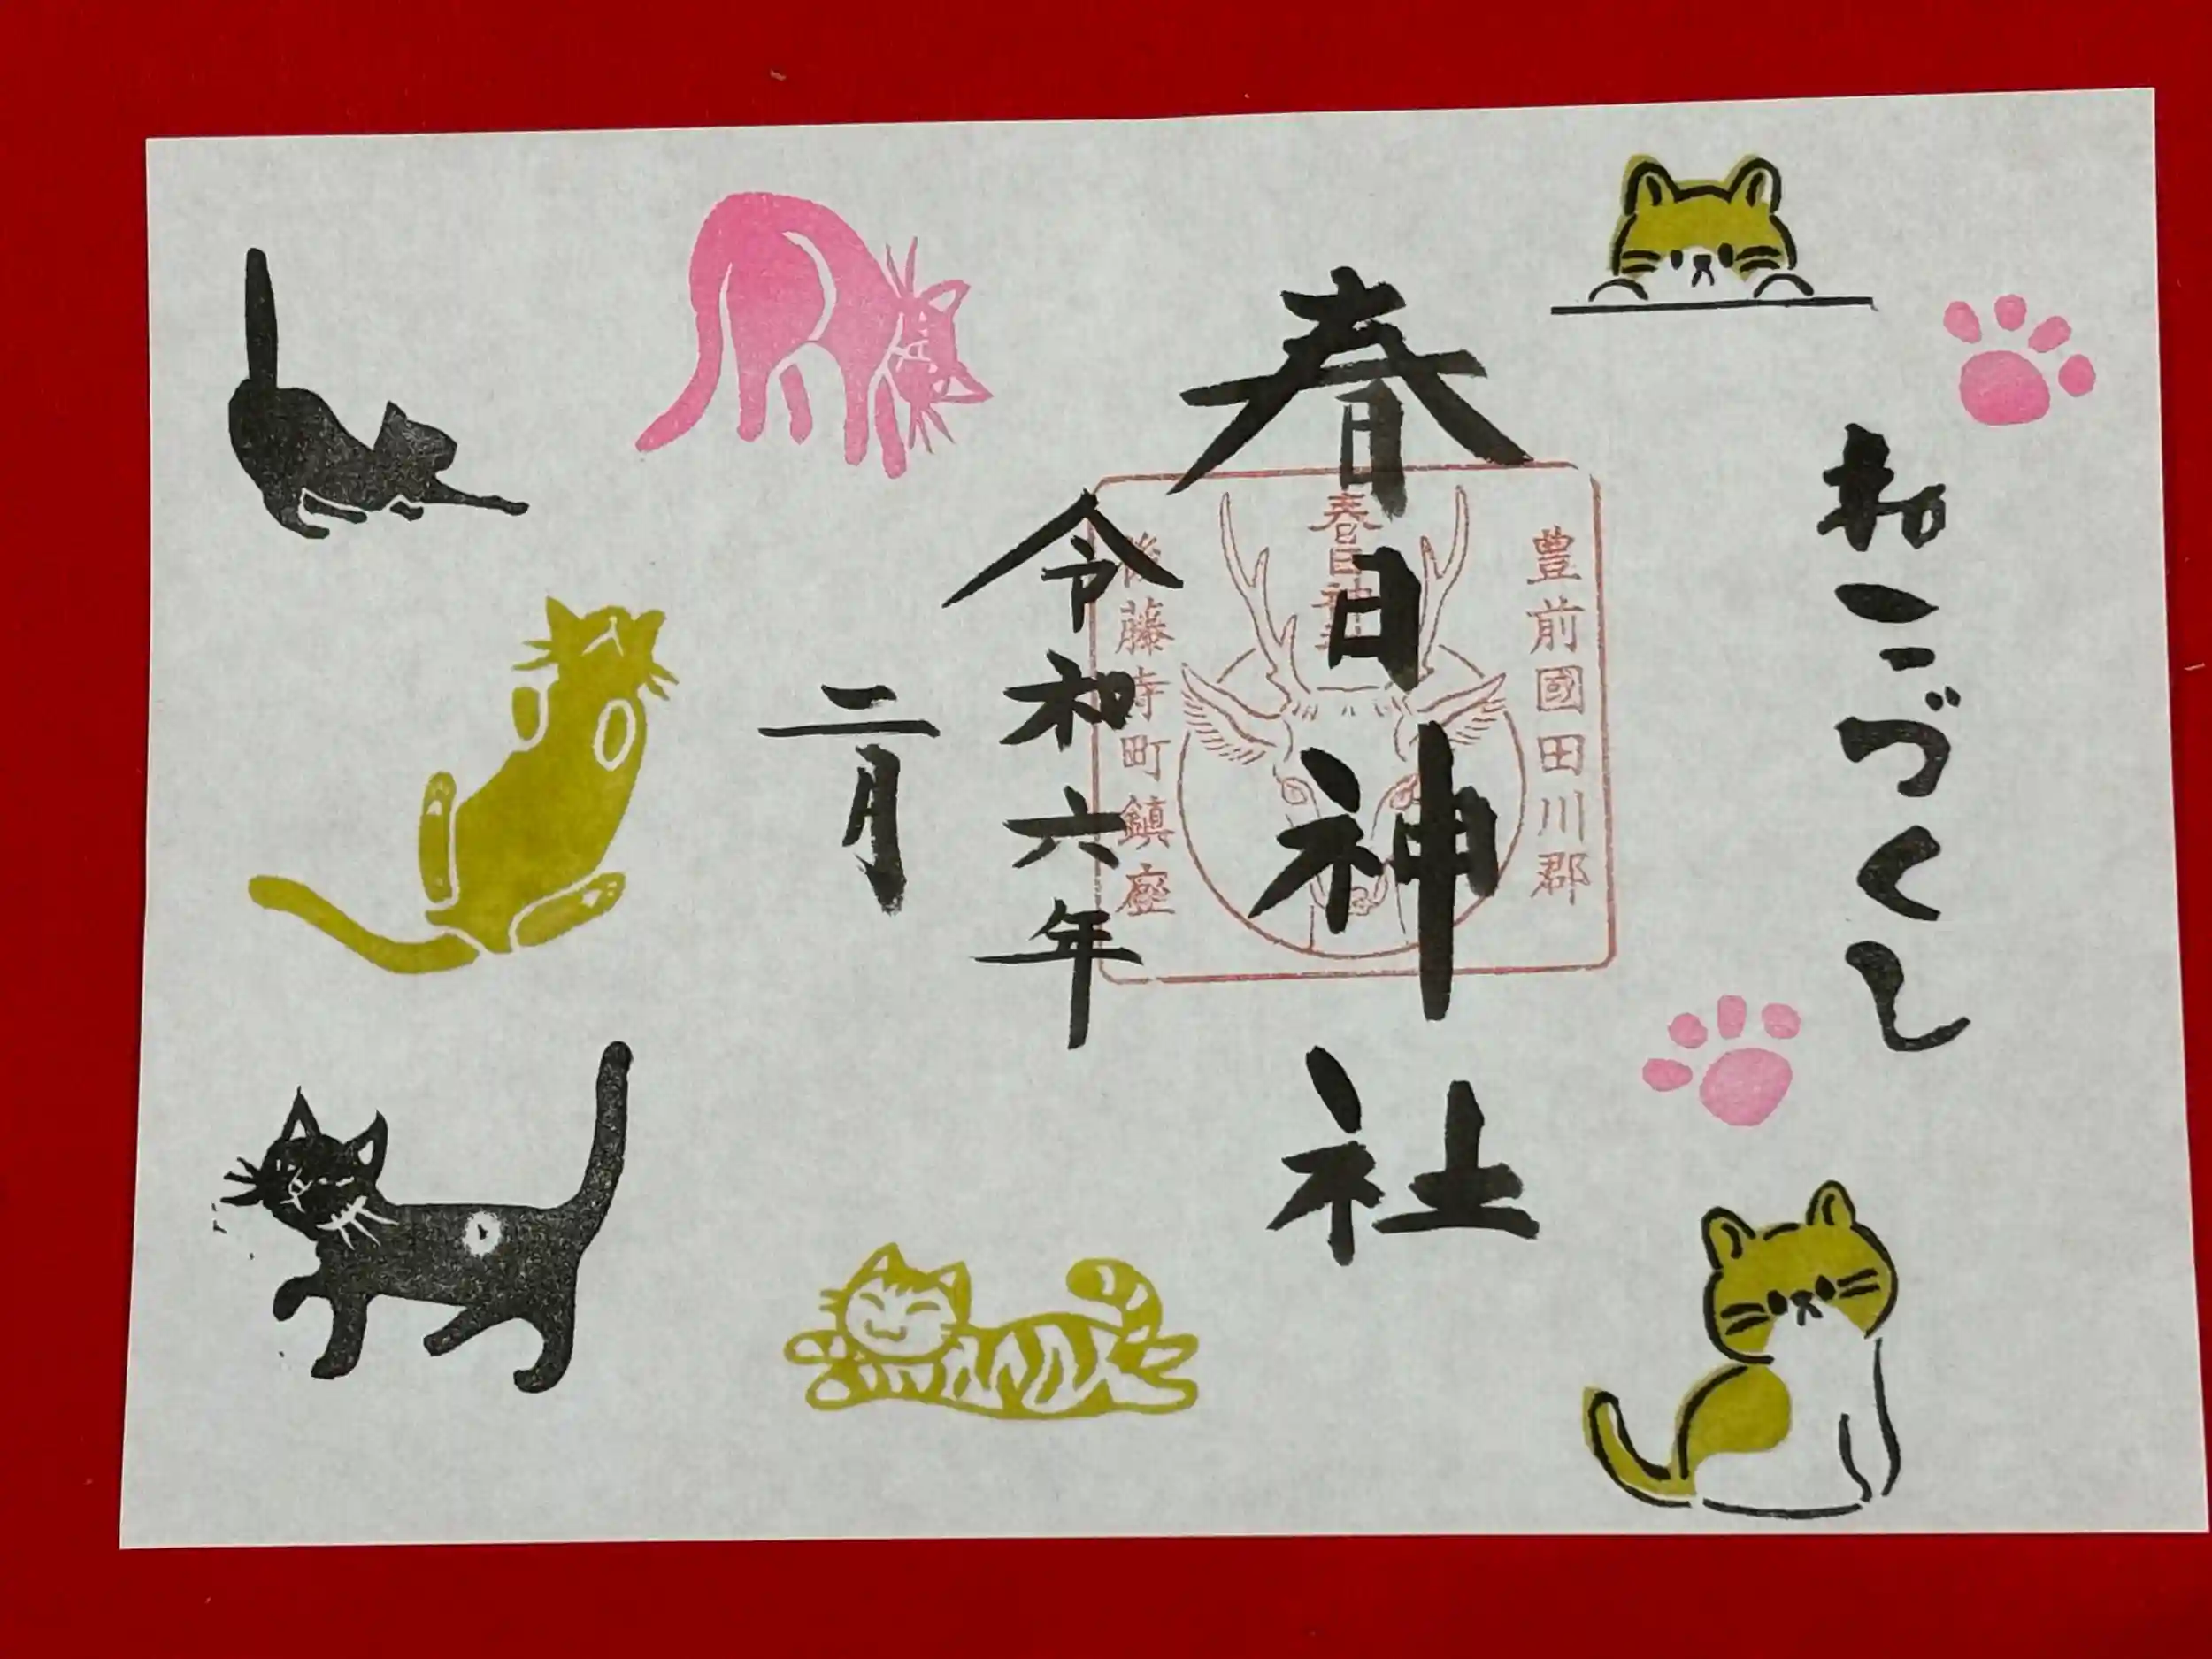 ねこづくし
春日神社
豊前國田川郡
春日神社
後藤寺町鎮座
令和六年
二月